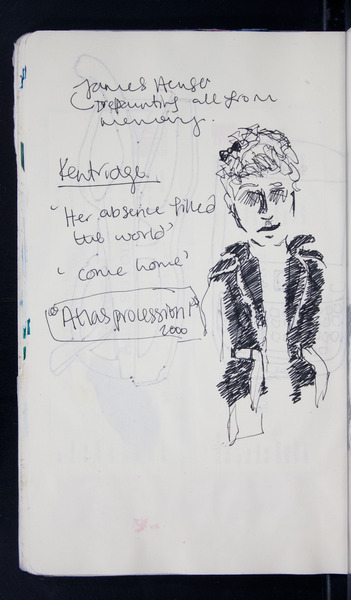 James
all from
memory.
Kentridge.
'Her absence filled
the world'
'come home'
Atlas procession
2000